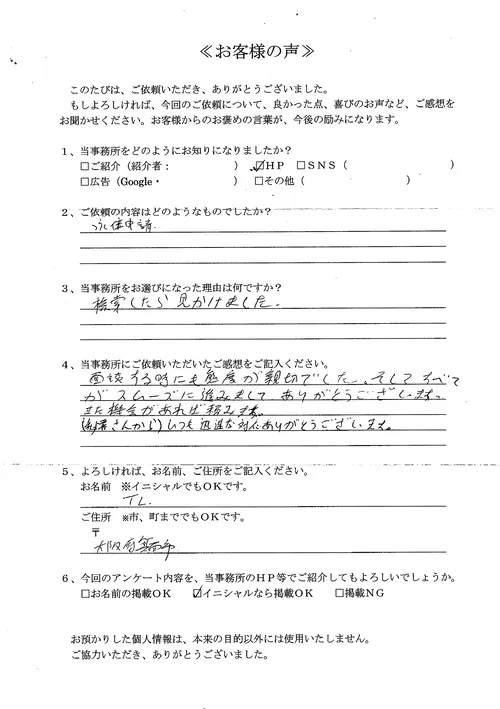 ≪お客様の声≫
このたびは、ご依頼いただき、ありがとうございました。
もしよろしければ、今回のご依頼について、良かった点、喜びのお声など、ご感想を
お聞かせください。お客様からのお褒めの言葉が、今後の励みになります。
1、当事務所をどのようにお知りになりましたか？
□ご紹介（紹介者：　　　　　　）　☑ＨＰ　□ＳＮＳ（　　　　　　　　　）
□広告（Google・　　　　　　　）　□その他（　　　　　　　　　）
2、ご依頼の内容はどのようなものでしたか？
永住申請.
3、当事務所をお選びになった理由は何ですか？
検索したら見かけました.
4、当事務所にご依頼いただいたご感想をご記入ください。
面談する時にも態度が親切でした。そしてすべて
がスムーズに進みまして ありがとうございます。
また機会があれば頼みます。
さんから)いつも迅速な対応ありがとうございます。
5、よろしければ、お名前、ご住所をご記入ください。
お名前　※イニシャルでもＯＫです。
T.L.
ご住所　※市、町まででもＯＫです。
〒
大阪府箕面市
6、今回のアンケート内容を、当事務所のＨＰ等でご紹介してもよろしいでしょうか。
□お名前の掲載ＯＫ　☑イニシャルなら掲載ＯＫ　□掲載ＮＧ
お預かりした個人情報は、本来の目的以外には使用いたしません。
ご協力いただき、ありがとうございました。